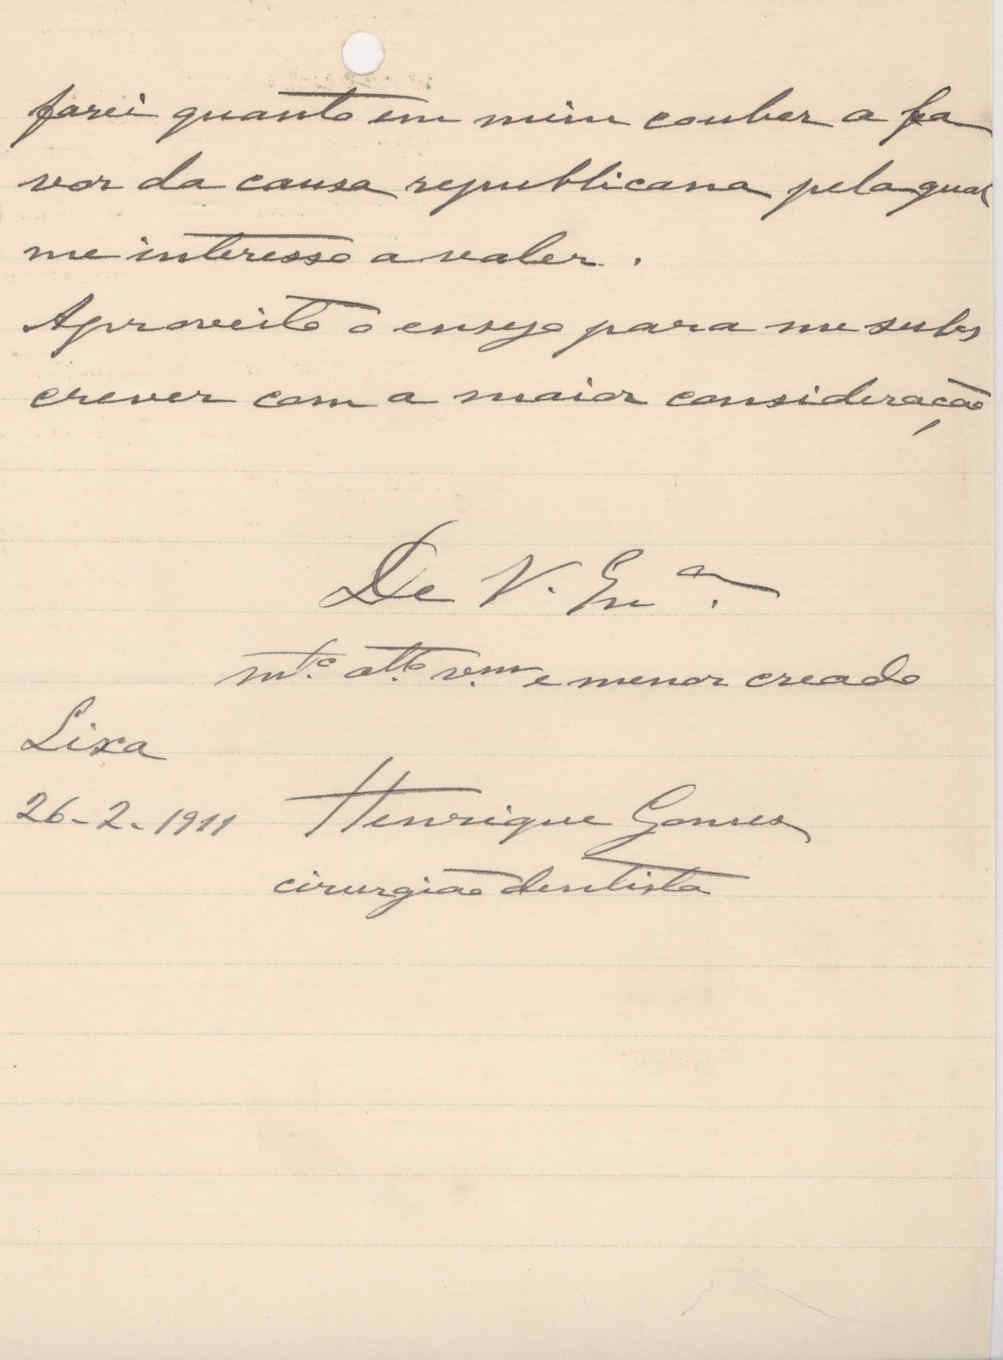 farei quanto em mim couber a fa
vor da causa republicana, pela qual
me interesso a valer.
Aproveito o ensejo para me subs
crever com a maior consideração
De V. Ex.ª
mt.º att.º v.ºr e menor creado
Lixa
26-2-1911 Henrique Gomes
cirurgião dentista